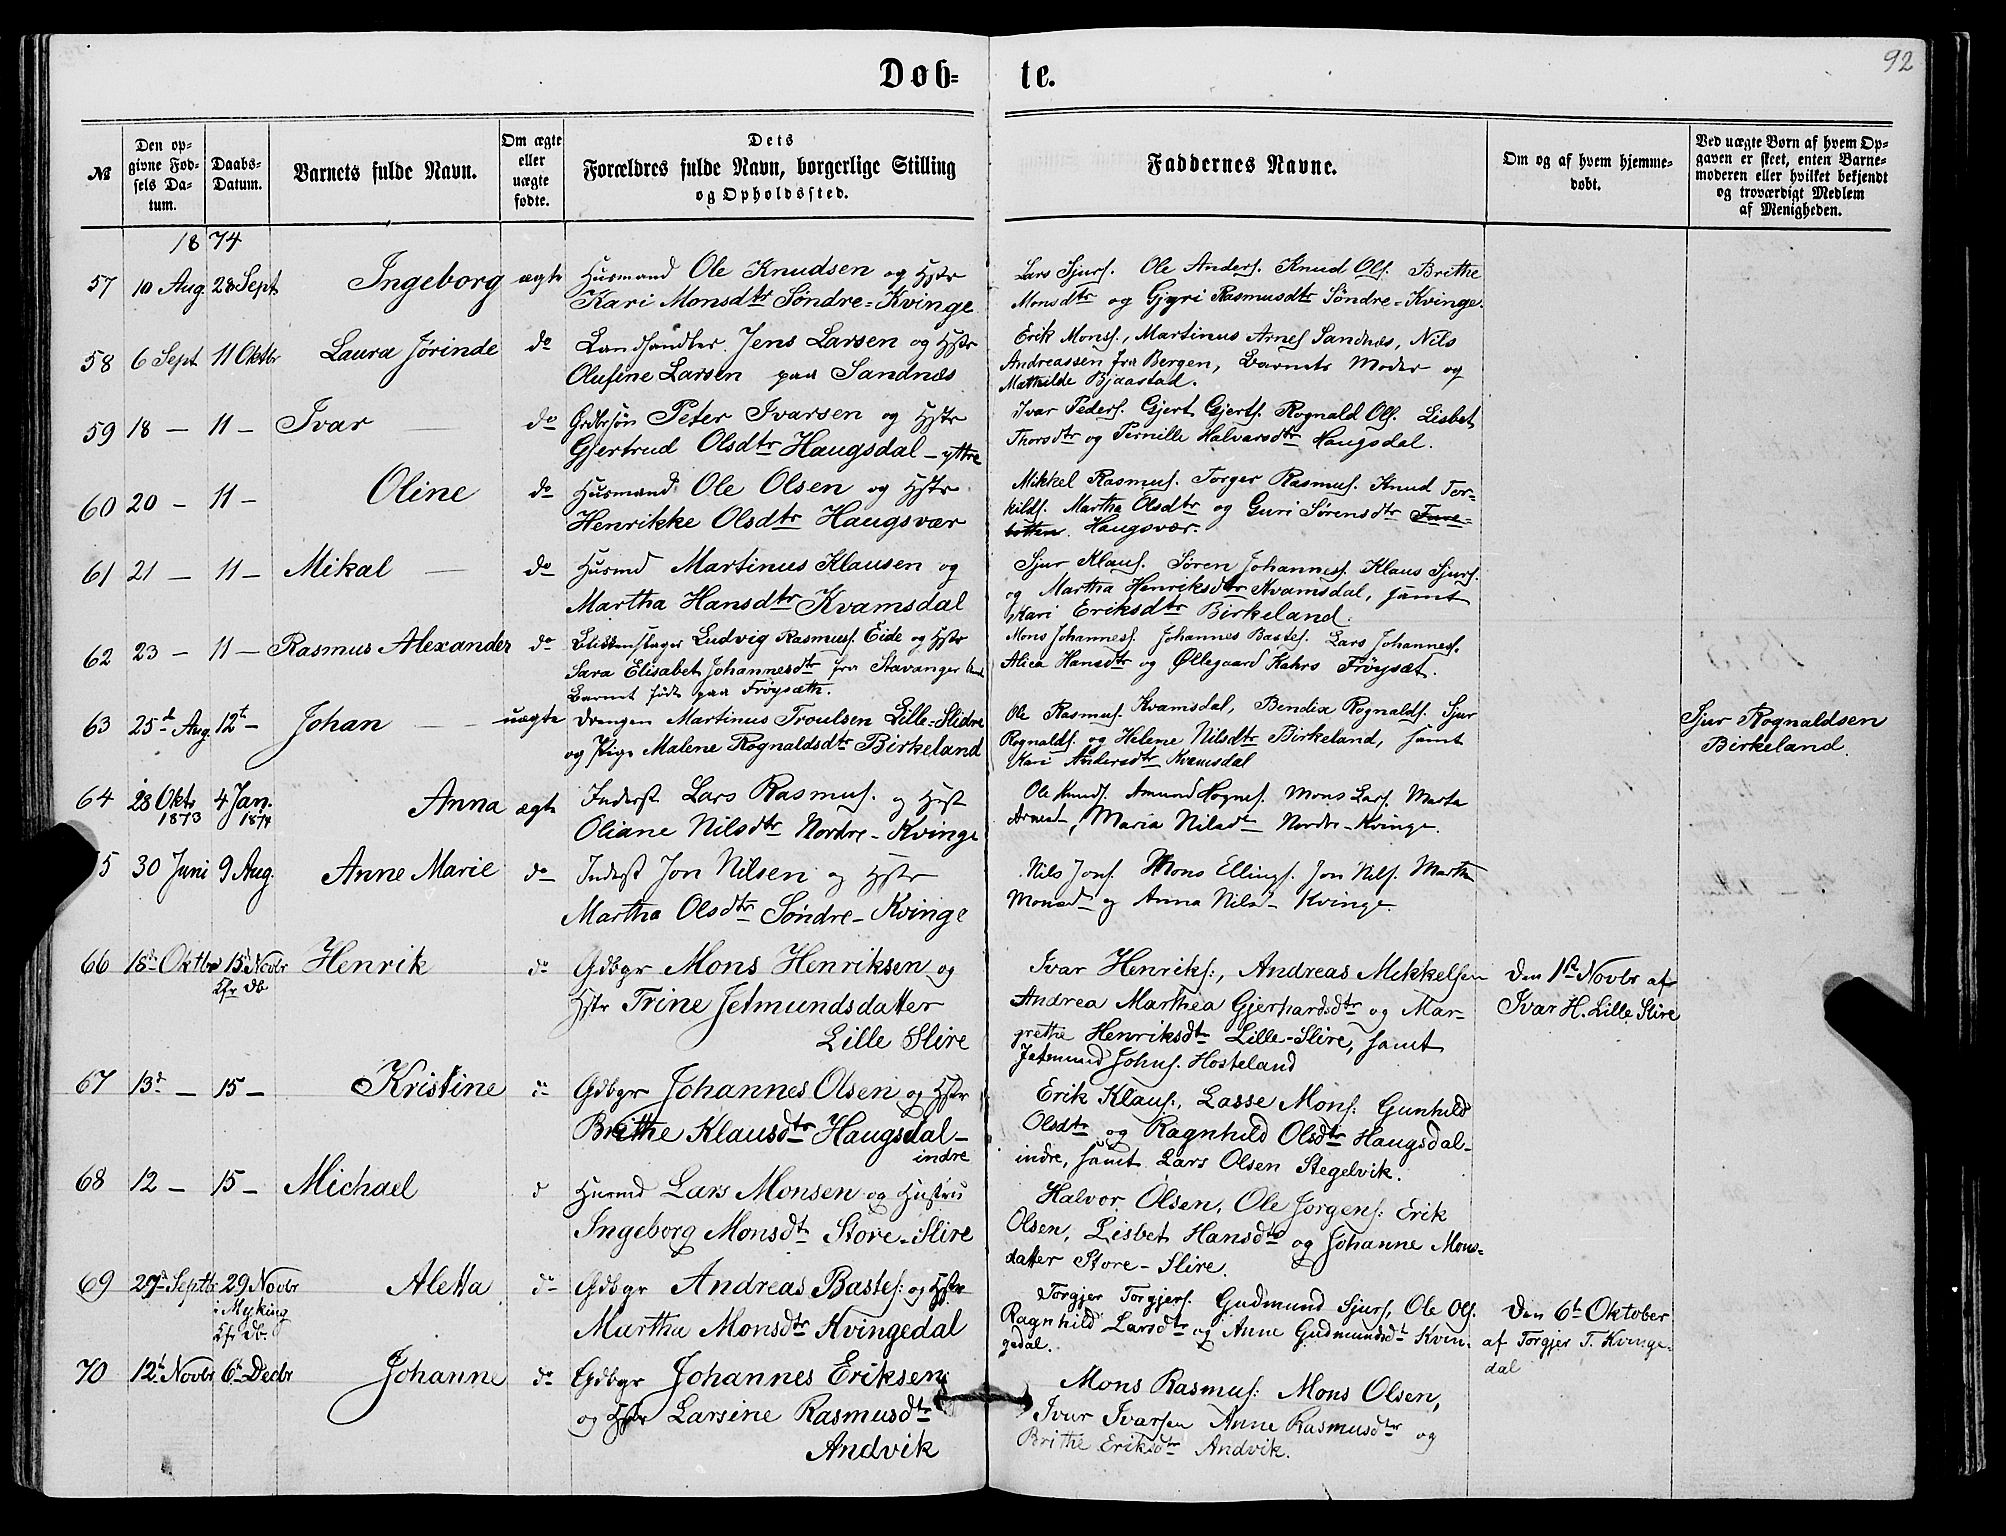 92
Døb- te.
№
Den opgivne Fødsels Datum.
Daabs-Datum.
Barnets fulde Navn.
Om ægte eller uægte fødte.
Dets Forældres fulde Navn, borgerlige Stilling og Opholdssted.
Faddernes Navne.
Om og af hvem hjemmedøbt.
Ved uægte Børn af hvem Opgaven er skeet, enten Barnemoderen eller hvilket bekjendt og troværdigt Medlem af Menigheden.
1874
57 10 Aug. 28 Sept. Ingeborg ægte Husmand Ole Knudsen og Hstr
Kari Monsdtr Søndre-Kvinge
Lars Sjurs. Ole Anders. Knud Ols. Brithe
Monsdtr og Gjyri Rasmusdtr Søndre-Kvinge.
58 6 Sept 11 Oktbr Laura Jörinde do Landhandler Jens Larsen og Hstr
Olufine Larsen paa Sandnæs
Erik Mons., Martinus Arnes Sandnæs, Nils
Andreassen fra Bergen, Barnets Moder og
Mathilde Bjaastad.
59 18 — 11 — Ivar — do Grdbrsøn Peter Ivarsen og Hstr
Gjertrud Olsdtr Haugsdal - yttre
Ivar Peders. Gjert Gjerts. Rognald Ols. Lisbet
Thorsdtr og Pernille Halvarsdtr Haugsdal.
60 20 — 11 — Oline do Husmand Ole Olsen og Hstr
Henrikke Olsdtr Haugsvær
Mikkel Rasmus. Torger Rasmus. Knud Tor-
kilds. Martha Olsdtr og Guri Sørensdtr
Haugsvær.
61 21 — 11 — Mikal — do Husmd Martinus Klausen og
Martha Hansdtr Kvamsdal
Sjur Klaus. Søren Johanness. Klaus Sjurs.
og Martha Henriksdtr Kvamsdal, samt
Kari Eriksdtr Birkeland.
62 23 — 11 — Rasmus Alexander do Blikkenslager Ludvig Rasmus. Eide og Hstr
Sara Elisabet Johannesdtr fra Stavanger
Barnet født paa Frøysæth.
Mons Johanness. Johannes Bastes. Lars Johanness.
Alica Hansdtr og Øllegaard Kahrs Frøysæt.
63 25d Aug. 12t — Johan — uægte Drengen Martinus Troulsen Lille-Slidre
og Pige Malene Rognaldsdtr Birkeland
Ole Rasmus. Kvamsdal, Bendix Rognalds. Sjur
Rognalds. og Helene Nilsdtr Birkeland, samt
Kari Andersdtr Kvamsdal
Sjur Rognaldsen
Birkeland.
64 28 Oktr 1873 4 Jan. 1874 Anna ægte Inderst Lars Rasmus. og Hust
Oliane Nilsdtr Nordre-Kvinge
Ole Knuds. Amund Hognes. Mons Lars. Marta
Arnesd, Maria Nilsdtr Nordre-Kvinge.
5 30 Juni 9 Aug. Anne Marie do Inderst Jon Nilsen og Hstr
Martha Olsdtr Søndre-Kvinge
Nils Jons. Mons Ellings. Jon Nils. Martha
Monsd og Anna Nilsd Kvinge.
66 18de Oktbr 15de Novbr Kfr Db Henrik do Gdbgr Mons Henriksen og
Hstr Trine Jetmundsdatter
Lille Slire
Ivar Henriks:, Andreas Mikkelsen
Andrea Marthea Gjerhardsdtr og Mar-
grethe Henriksdtr Lille-Slire, samt
Jetmund Johns. Hosteland
Den 1ste Novbr af
Ivar H. Lille Slire
67 13d — 15 — Kristine do Gdbgr Johannes Olsen og Hstr
Brithe Klausdtr Haugsdal-
indre
Erik Klaus:, Lasse Mons: Gunhild
Olsdtr og Ragnhild Olsdtr Haugsdal-
indre, samt Lars Olsen Stegelvik.
68 12 — 15 — Michael d Husmd Lars Monsen og Hustru
Ingeborg Monsdtr Store-Slire
Halvor Olsen, Ole Jørgens: Erik
Olsen, Lisbet Hansdtr og Johanne Mons-
datter Store-Slire.
69 27d Septbr 29 Novbr i Myking Kfr Db. Aletta do Gdbgr Andreas Bastes: og Hstr
Martha Monsdtr Kvingedal
Torgjer Torgjers. Gudmund Sjurs, Ole Ols.
Ragnhild Larsdtr og Anne Gudmundsdt Kvin-
gedal.
Den 6te Oktober
af Torgjer T. Kvinge-
dal
70 12t Novbr 6te Decbr Johanne do Gdbgr Johannes Eriksen
og Hstr Larsine Rasmusdtr
Andvik
Mons Rasmus: Mons Olsen,
Ivar Ivarsen Anne Rasmusdtr og
Brithe Eriksdtr Andvik.